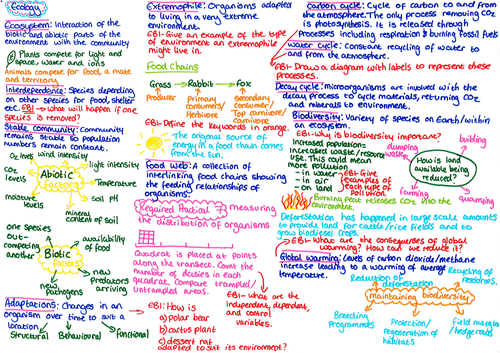 Ecology
Ecosystem: Interaction of the
biotic and abiotic parts of the
environment with the community
Plants compete for light and
space, water and ions
Animals compete for food, a mate
and territory.
Interdependence: Species depending
on other species for food, shelter
etc. EBI → what will happen if one
species is removed?
Stable community: Community
remains stable so population
numbers remain constant.
wind intensity
O₂ levels
light intensity
CO₂
levels
Abiotic
Factors
Temperature
moisture
levels
Soil pH
mineral
content of soil
one species
out-
competing
another
availability
of food
Biotic
factors
new
pathogens
new
predators
arriving
Adaptations: Changes in an
organism over time to suit a
location.
Structural Behavioural Functional
Extremophile: Organisms adapted
to living in a very extreme
environment.
EBI- Give an example of the type
of environment an extremophile
might live in.
Food Chains
Grass → Rabbit → Fox
Producer
Primary
Consumer/
Herbivore
Secondary
consumer/
Top carnivore/
carnivore
EBI- Define the keywords in orange.
The original source of
energy in a food chain
comes from the sun.
Food web: A collection of
interlinking food chains showing
the feeding relationships of
organisms.
Required Practical 7
measuring
the distribution of organisms
Quadrat is placed at points
along the transect. Count the
number of daisies in each
quadrat. Compare trampled/
untrampled areas.
EBI- How is
a) polar bear
b) cactus plant
c) dessert rat
adapted to suit its environment?
EBI- what are
the independent,
dependent,
and control
variables.
Carbon cycle: Cycle of carbon to and from
the atmosphere. The only process removing CO₂
is photosynthesis. It is released through
processes including respiration & burning fossil fuels
Water cycle: Constant recycling of water to
and from the atmosphere.
EBI- Draw a diagram with labels to represent these
processes.
Decay cycle: microorganisms are involved with the
decay process to cycle materials, returning CO₂
and minerals to environment.
Biodiversity: Variety of species on Earth/within
an ecosystem.
EBI- why is biodiversity important?
Increased population:
Increased waste/resource
use. This could mean
more pollution
- in water
- in air
- on land
EBI- Give
examples
of each
type of
Pollution.
dumping
waste
building
How is land
available being
reduced?
farming
quarrying
Burning peat releases CO₂ into the
environment.
Deforestation has happened in large scale amounts
to provide land for cattle/rice fields and to
grow biodiesel crops.
EBI- What are the consequences of global
warming? How can we reduce it?
Global warming: levels of carbon dioxide/methane
increase leading to a warming of average
temperature.
Reduction of
deforestation
Recycling of resources.
maintaining biodiversity
Breeding
Programmes
Protection/
regeneration of
habitats
Field margin
/hedgerows